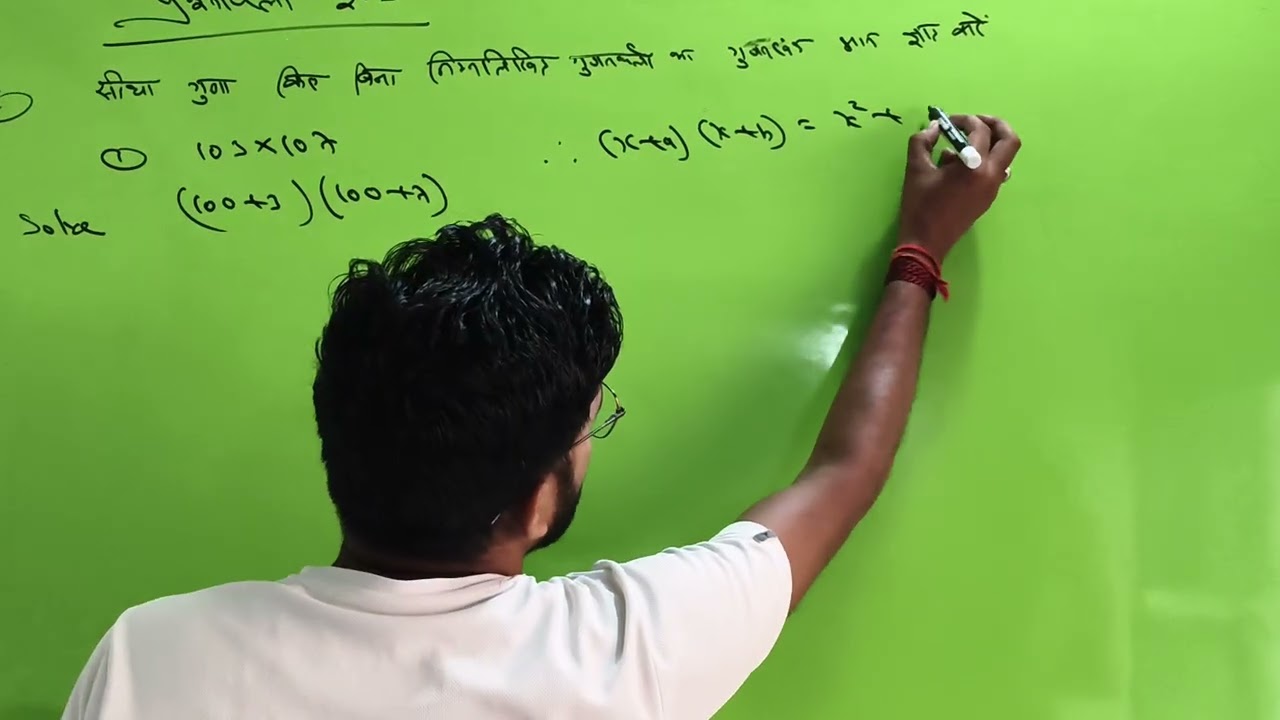 सीधा गुणा किए बिना निम्नलिखित गुणनफलों का मान ज्ञात करें
① 103×107
∴ (x+a) (x+b) = x² +
Solve (100+3) (100+7)